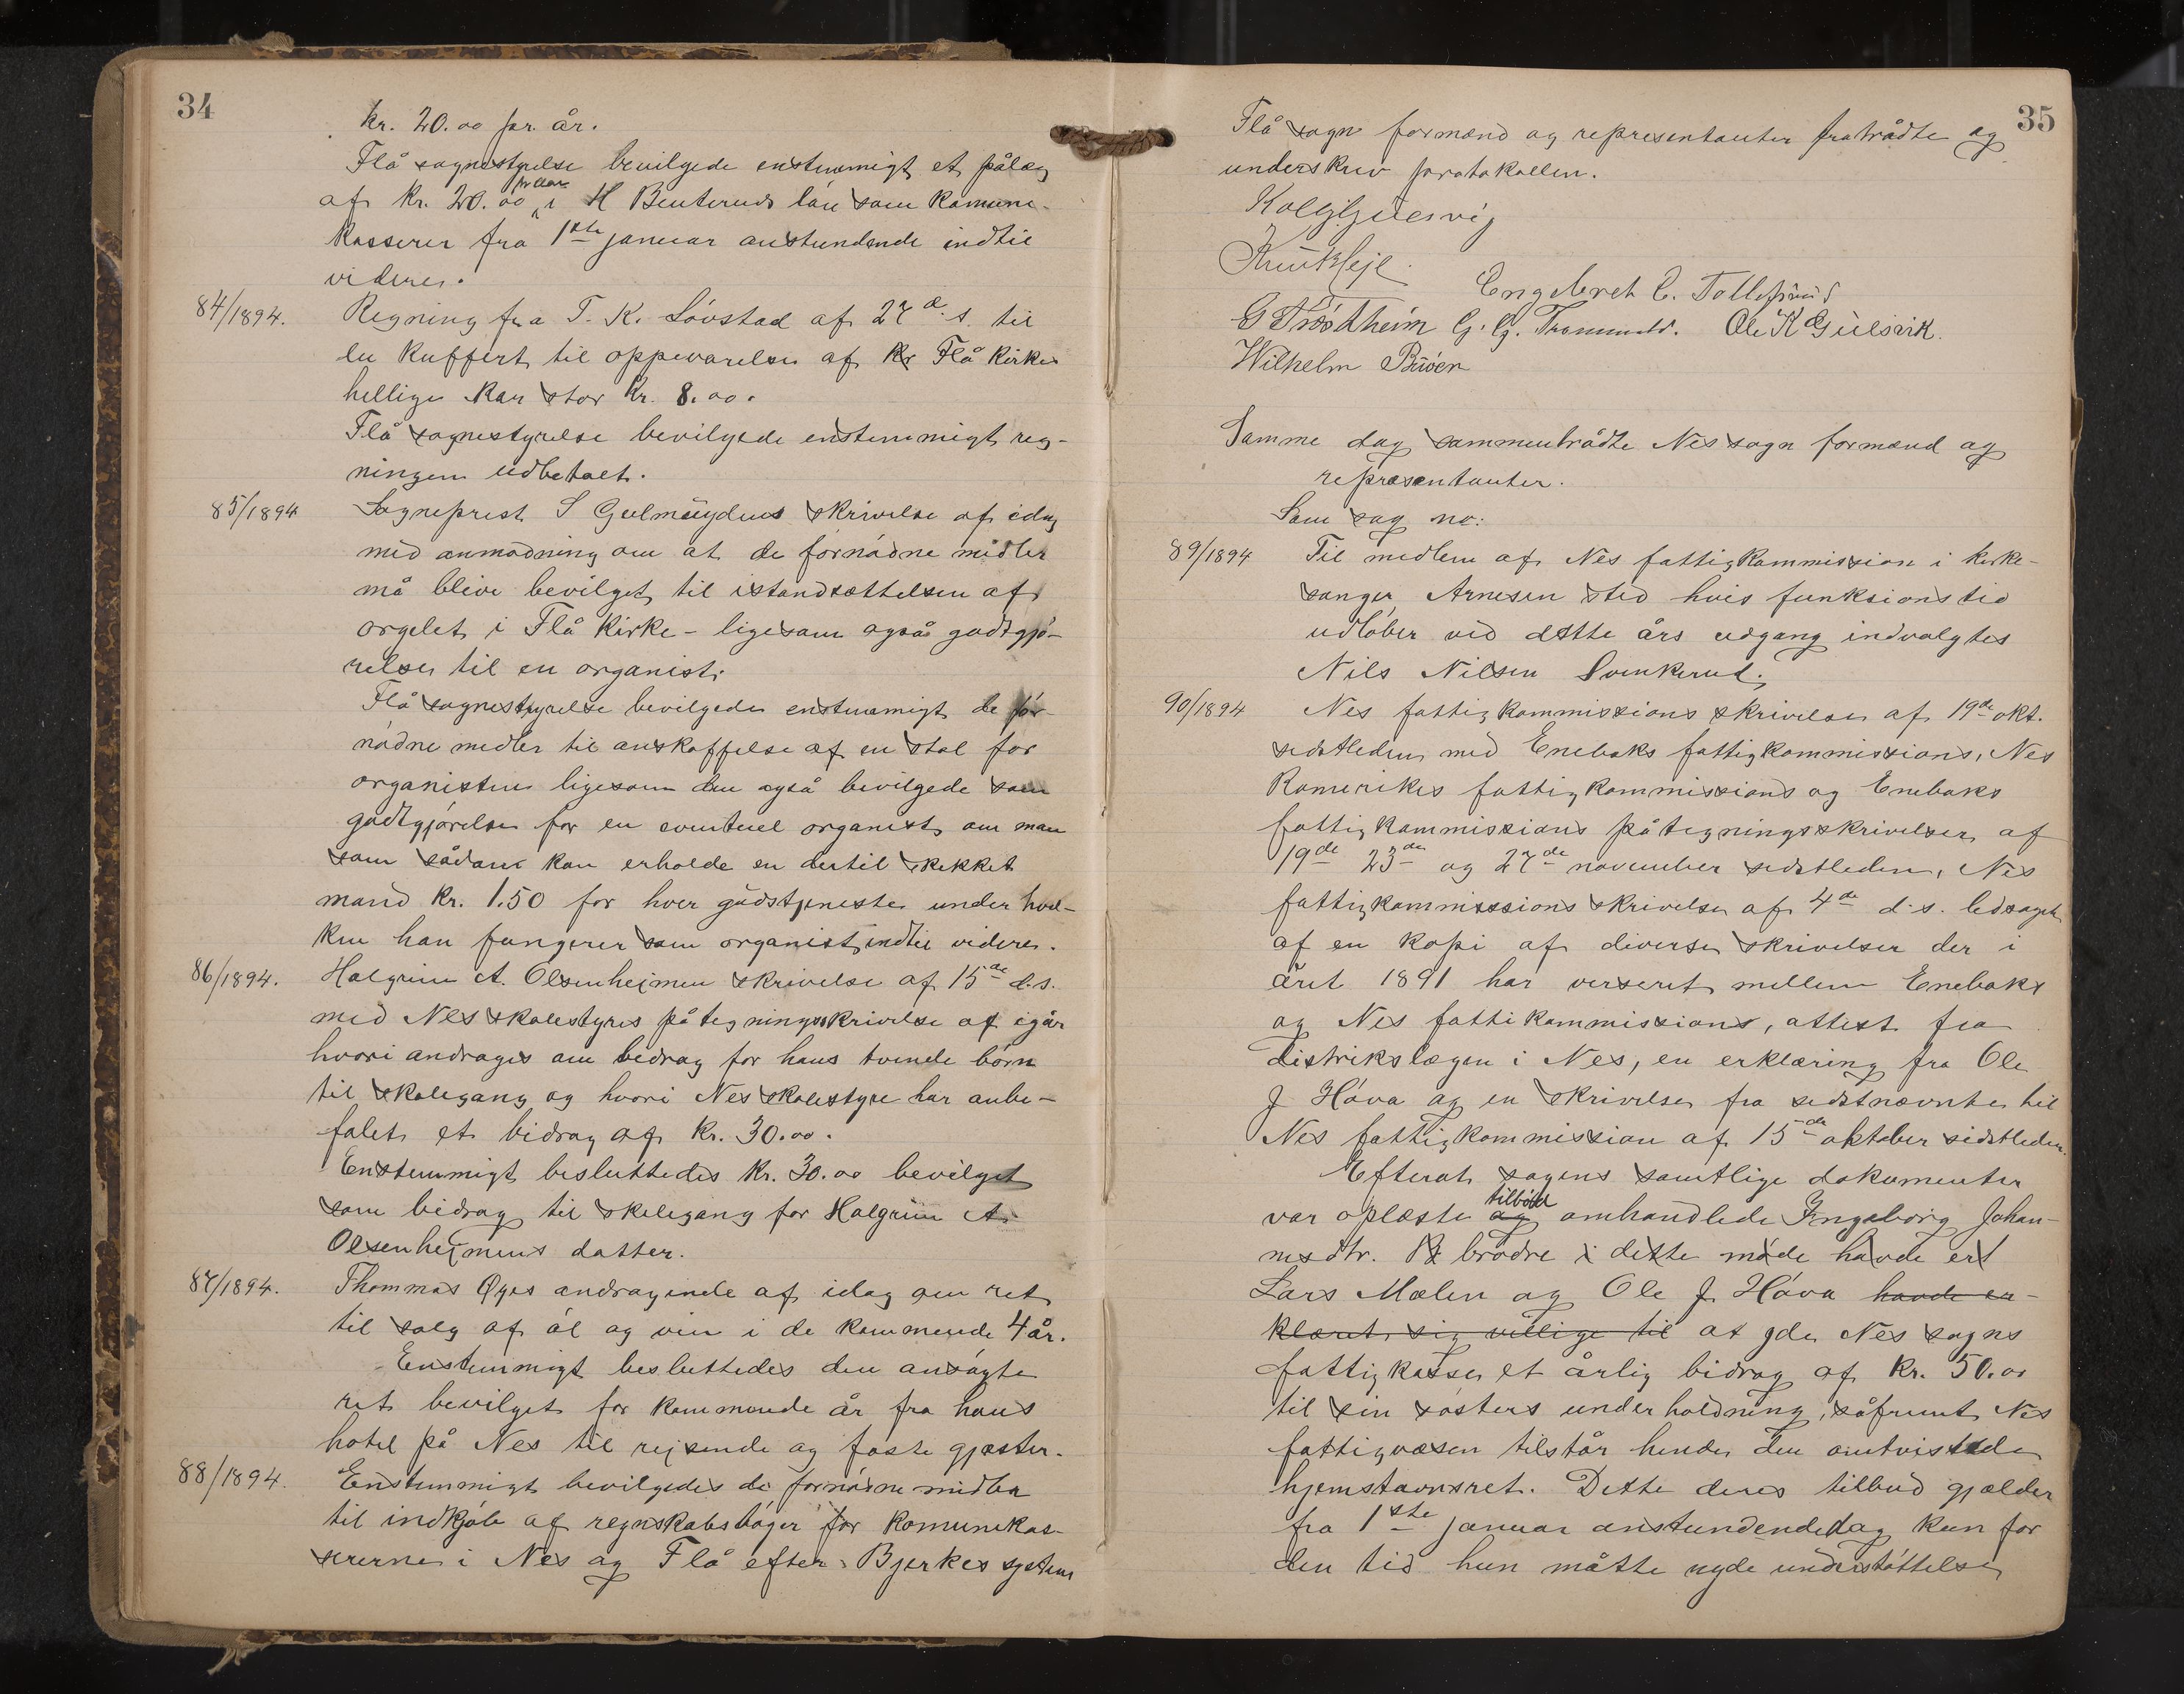 34
kr. 20.00 pr. år.
Flå sognestyrelse bevilgede enstemmigt et pålæg
pr aar
af kr. 20.00 i H Benteruds løn som komune-
kasserer fra 1ste januar anstundende indtil
videre.
84/1894. Regning fra T. K. Løvstad af 27 d.s. til
en kuffert til oppevarelse af kr Flå kirkes
hellige kar stor kr. 8.00.
Flå sognestyrelse bevilgede enstemmigt reg-
ningen udbetalt.
85/1894 Sogneprest S Gulmøydens skrivelse af idag
med anmodning om at de fornødne midler
må blive bevilget til istandsættelsen af
orgelet i Flå kirke - ligesom også godtgjø-
relse til en organist.
Flå sognestyrelse bevilgede enstemmigt de for-
nødne midler til anskaffelse af en stol for
organisten ligesom den også bevilgede som
godtgjørelse for en eventuel organist, om man
som sådan kan erholde en dertil skikket
mand kr. 1.50 for hver gudstjeneste under hvil-
ken han fungerer som organist indtil videre.
86/1894. Halgrim A. Olsenhejmen skrivelse af 15de d.s.
med Nes skolestyres påtegningsskrivelse af igår
hvori andrages om bidrag for hans tvende børn
til skolegang og hvori Nes skolestyre har anbe-
falet et bidrag af kr. 30.00.
Enstemmigt besluttedes kr. 30.00 bevilget
som bidrag til skolegang for Halgrim A.
Olsenhejmens datter.
87/1894. Thommas Øyes andragende af idag om ret
til salg af øl og vin i de kommende 4 år.
Enstemmigt besluttedes den ansøgte
ret bevilget for kommende år fra hans
hotel på Nes til rejsende og faste gjæster.
88/1894. Enstemmigt bevilgedes de fornødne midler
til indkjøb af regnskabsbøger for komunekas-
sererne i Nes og Flå efter Bjerkes system
35
Flå sogn formænd og representanter fratrådte og
underskrev protokollen.
Engebret C. Tollefsrud
G Trøstheim G. G. Trommald. Ole K Gulsvik.
Wilhelm Büoen
Samme dag sammentrådte Nes sogn formænd og
repræsentanter.
Som sag no:
89/1894 Til medlem af Nes fattigkommission i kirke-
sanger Arnesen sted hvis funksionstid
udløber ved dette års udgang indvalgtes
Nils Nilsen Svenkerud.
90/1894 Nes fattigkommissions skrivelse af 19de okt.
sidstleden med Enebaks fattigkommissions, Nes
Romerikes fattigkommissions og Enebaks
fattigkommissions påtegningsskrivelser af
19de 23de og 27de november sidstleden, Nes
fattigkommisssions skrivelse af 4de d.s. ledsaget
af en kopi af diverse skrivelser der i
året 1891 har verseret mellem Enebaks
og Nes fattikommissions, attest fra
distrikslægen i Nes, en erklæring fra Ole
J Høva og en skrivelse fra sidstnævnte til
Nes fattigkommission af 15de oktober sidstleden.
Efterat sagens samtlige dokumenter
tilbød
var oplæste og omhandlede Ingeborg Johan-
nesdtr. brødre i dette møde havde erk
Lars Mælen og Ole J. Høva havde er-
klæret sig villige til at yde Nes sogns
fattigkasse et årlig bidrag af kr. 50.00
til sin søsters underholdning, såfremt Nes
fattigvæsen tilstår hende den omtvistede
hjemstavnsret. Dette deres tilbud gjælder
fra 1ste januar anstundende dog kun for
den tid hun måtte nyde understøttelse